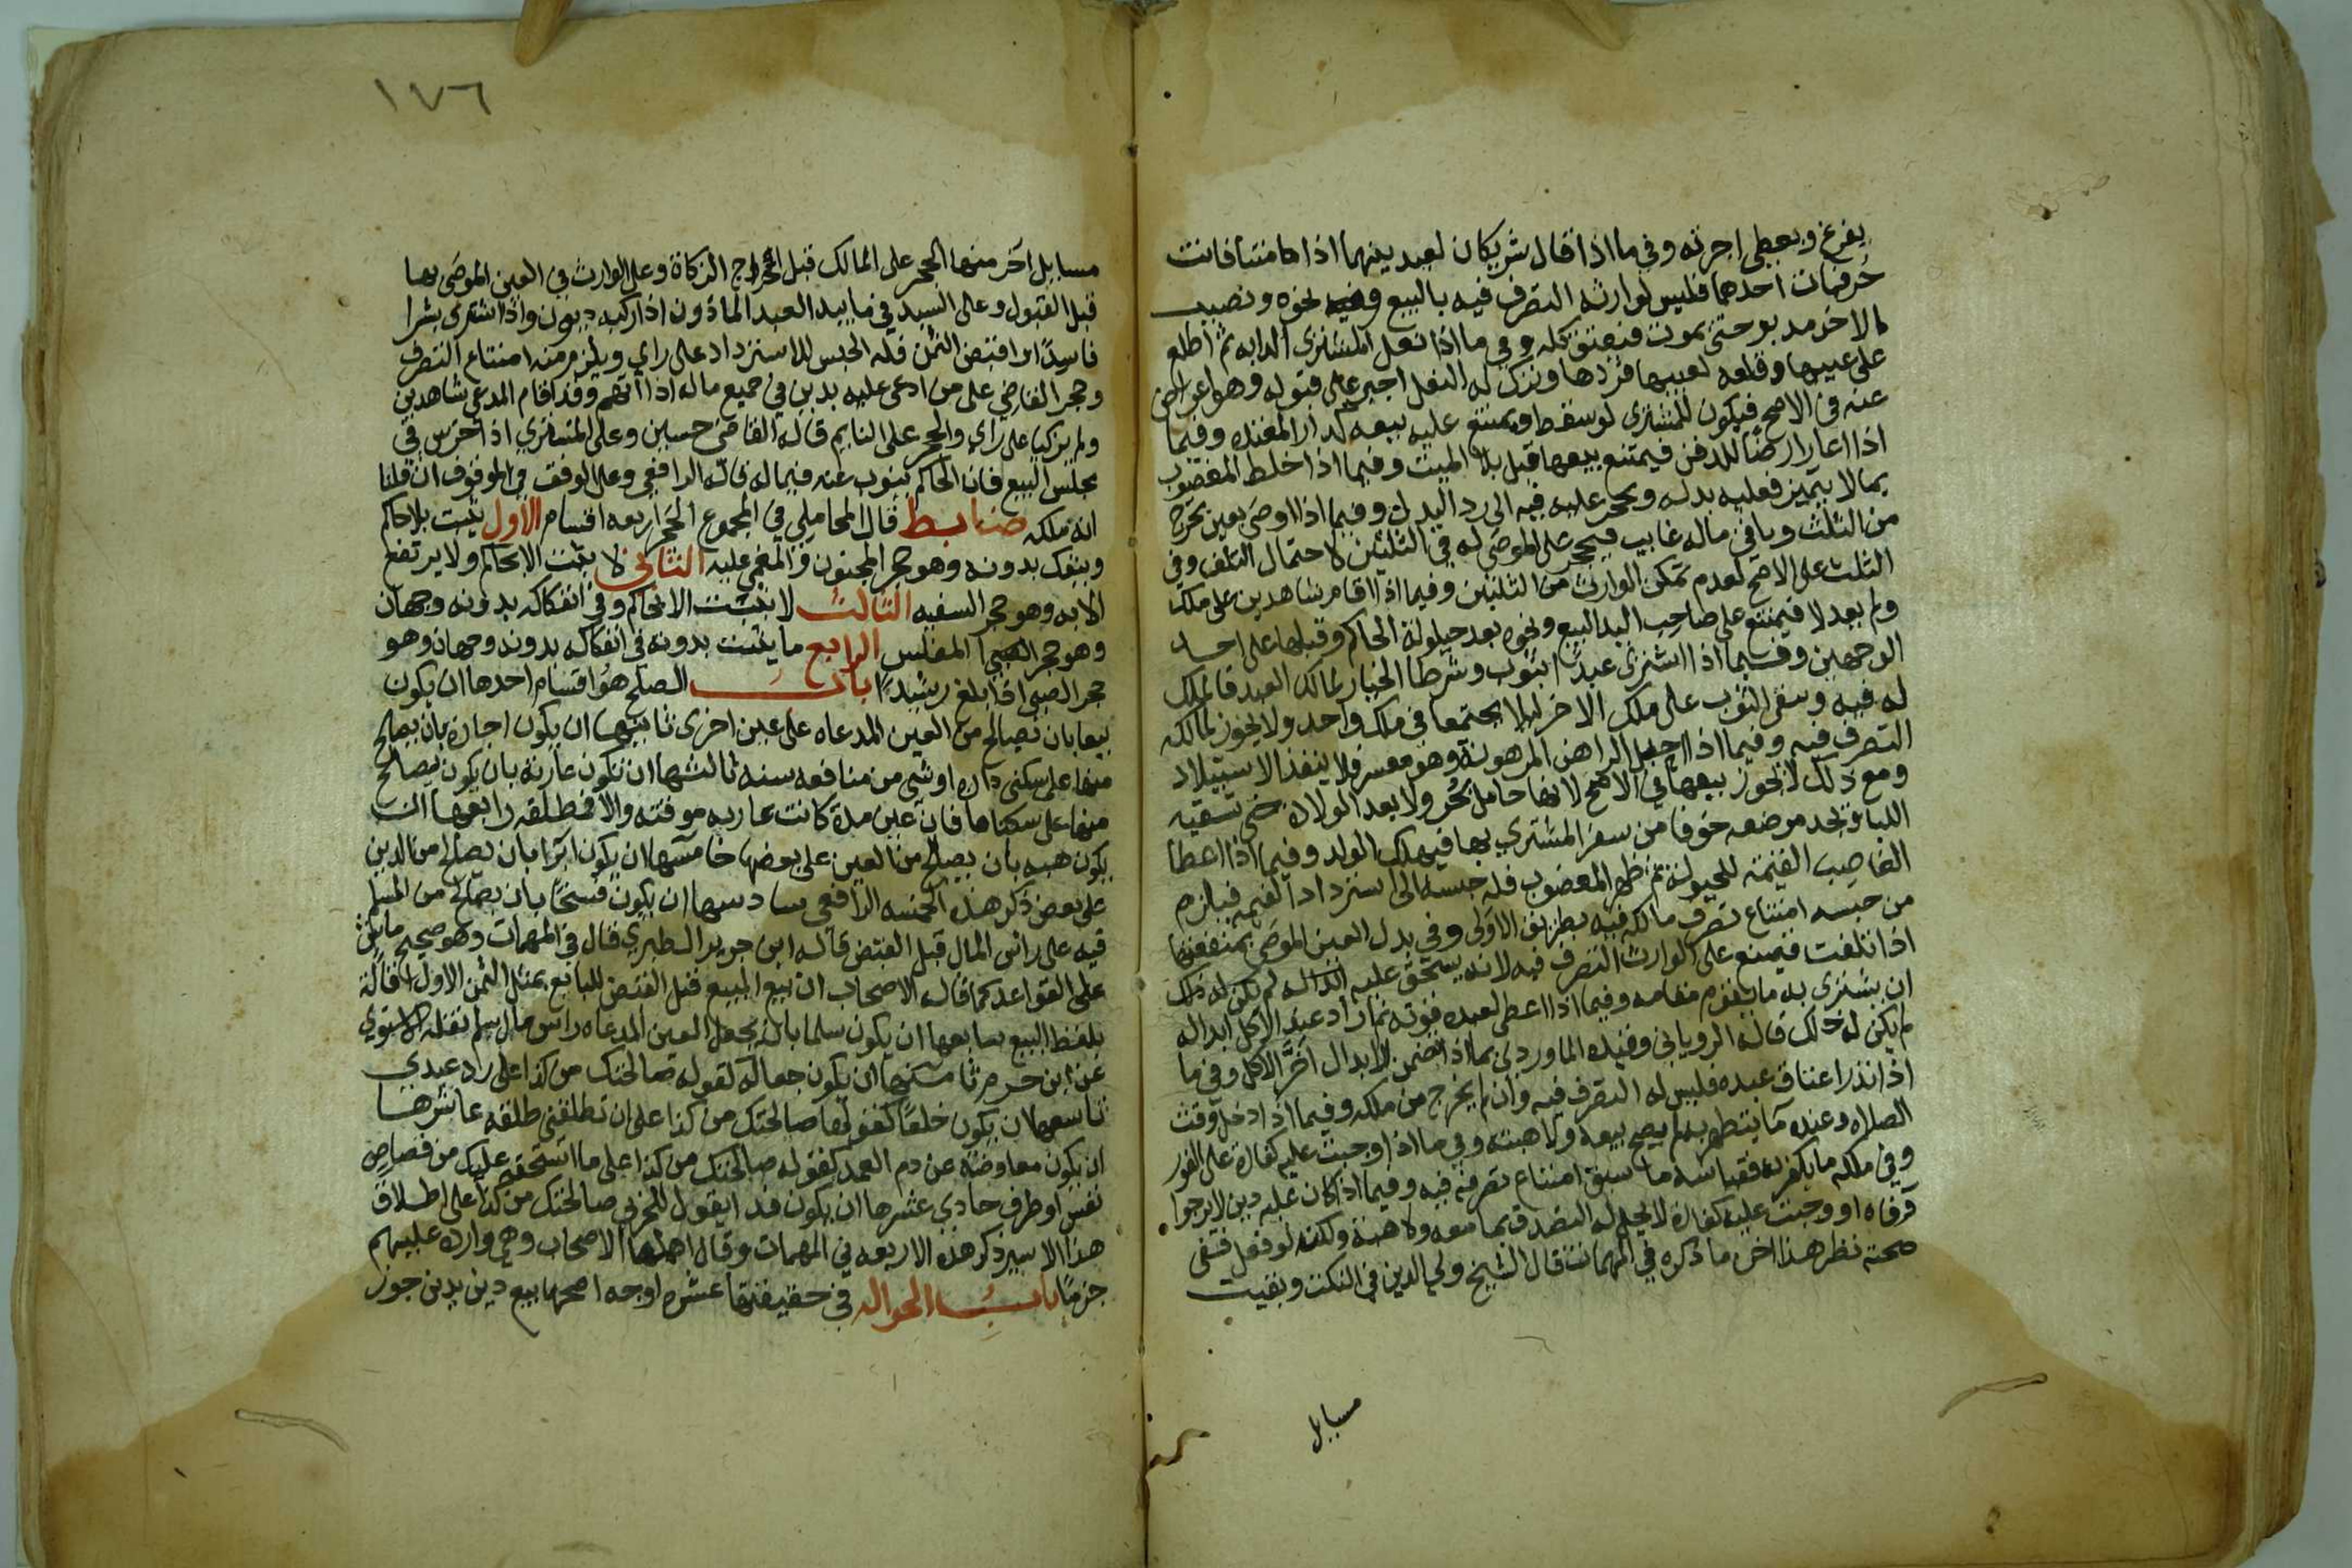 يفرغ ويعطى اجرته وفي ما اذا قال شريكان لعبد بينهما اذا متنا فانت
حر فمات احدهما فليس لوارثه التصرف فيه بالبيع ونحوه ونصيب
الاخر مدبر حتى يموت فيعتق كله وفي ما اذا نعل المشتري الدابه ثم اطلع
على عيبها وقلعه لعيبها فردها وترك له النعل اجبر على قبوله وهو اعراض
عنه في الاصح فيكون للمشتري لو سقط ويمتنع عليه بيعه كدار المعتده وفيما
اذا اعار ارضا للدفن فيمتنع بيعها قبل بلا الميت وفيما اذا خلط المغصوب
بما لا يتميز فعليه بدله ويحجر عليه فيه الى رد البدل وفيما اذا اوصى بعين تخرج
من الثلث وباقي ماله غايب فيحجر على الموصى له في الثلثين لاحتمال التلف وفي
الثلث على الاصح لعدم تمكن الوارث من الثلثين وفيما اذا اقام شاهدين على ملك
ولم يعدلا فيمتنع على صاحب اليد البيع ونحوه بعد حيلولة الحاكم وقبلها على احد
الوجهين وفيما اذا اشترى عبدا بثوب وشرطا الخيار لمالك العبد فالملك
له فيه وبقي الثوب على ملك الاخر ليلا يجتمعا في ملك واحد ولا يجوز لمالكه
التصرف فيه وفيما اذا احبل الراهن المرهونة وهو معسر فلا ينفذ الاستيلاد
ومع ذلك لا يجوز بيعها في الاصح لانها حامل بحر ولا بعد الولادة حتى تسقيه
اللبا وتجد مرضعه خوفا من سفر المشتري بها فيهلك الولد وفيما اذا اعطا
الغاصب القيمة للحيولة ثم ظهر المغصوب فله حبسه الى استرداد القيمة فيلزم
من حبسه امتناع تصرف مالكه فيه بطريق الاولى وفي بدل العين الموصى بمنفعتها
اذا تلفت فيمتنع على الوارث التصرف فيه لانه يستحق عليه
ان يشتري به ما يقوم مقامه وفيما اذا اعطى لعبده قوته ثم اراد عند الاكل ابداله
لم يكن له ذلك قاله الروياني وقيده الماوردي بما اذا تضمن الابدال تاخر الاكل وفي ما
اذا نذر اعتاق عبده فليس له التصرف فيه وان لم يخرج من ملكه وفيما اذا دخل وقت
الصلاه وعنده ما يتطهر به لم يصح بيعه ولا هبته وفي ما اذا وجبت عليه كفارة على الفور
وفي ملكه ما يكفر به فقياسه ما سبق امتناع تصرفه فيه وفيما اذا كان عليه دين لا يرجوا
وفاه او وجبت عليه كفارة لا يحل له التصدق بما معه ولا هبته ولكنه لو فعل ففي
صحته نظر هذا اخر ما ذكره في المهمات قال الشيخ ولي الدين في النكت وبقيت
مسايل
١٧٦
مسايل اخر منها الحجر على المالك قبل اخراج الزكاة وعلى الوارث في العين الموصى بها
قبل القبول وعلى السيد في ما بيد العبد الماذون اذا ركبه ديون واذا اشترى بشرا
فاسدا واقتبض الثمن فله الحبس للاسترداد على راي ويلزم منه امتناع التصرف
وحجر القاضي على من ادعى عليه بدين في جميع ماله اذا اتهم وقد اقام المدعي شاهدين
ولم يزكيا على راي والحجر على النايم قاله القاضي حسين وعلى المشتري اذا خرس في
مجلس البيع فان الحاكم ينوب عنه فيما له قاله الرافعي وعلى الوقف في الموقوف ان قلنا
انه ملكه ضابط قال المحاملي في المجموع الحجر اربعه اقسام الاول يثبت بلا حاكم
وينفك بدونه وهو حجر المجنون والمغمى عليه الثاني لا يثبت الا بحاكم ولا يرتفع
الا به وهو حجر السفيه الثالث لا يثبت الا بحاكم وفي انفكاكه بدونه وجهان
وهو حجر المفلس الرابع ما يثبت بدونه في انفكاكه بدونه وجهان وهو
حجر الصبي اذا بلغ رشيدا باب الصلح هو اقسام احدها ان يكون
بيعا بان يصالح من العين المدعاه على عين اخرى ثانيها ان يكون اجاره بان يصالح
منها على سكنى داره او شي من منافعه سنه ثالثها ان تكون عارية بان يكون يصالح
منها على سكناها فان عين مدة كانت عاريه موقته والا فمطلقه رابعها ان
يكون هبه بان يصالح من العين على بعضها خامسها ان يكون ابرا بان يصالح من الدين
على بعض ذكر هذه الخمسه الرافعي سادسها ان يكون فسخا بان يصالح من المسلم
فيه على راس المال قبل القبض قاله ابن جرير الطبري قال في المهمات وهو صحيح ماش
على القواعد كما قال الاصحاب ان بيع المبيع قبل القبض للبايع بمثل الثمن الاول اقالة
بلفظ البيع سابعها ان يكون سلما بان يجعل العين المدعاه راس مال سلم نقله الاسنوي
عن ابن حزم ثامنها ان يكون جعاله كقوله صالحتك من كذا على رد عبدي
تاسعها ان يكون خلعا كقولها صالحتك من كذا على ان تطلقني طلقه عاشرها
ان يكون معاوضة عن دم العمد كقوله صالحتك من كذا على ما استحقه عليك من قصاص
نفس او طرف حادي عشرها ان يكون فدا ايقول للحربي صالحتك من كذا على اطلاق
هذا الاسير ذكر هذه الاربعه في المهمات وقال اهملها الاصحاب وهي وارده عليهم
جزما باب الحواله في حقيقتها عشره اوجه اصحها بيع دين بدين جوز